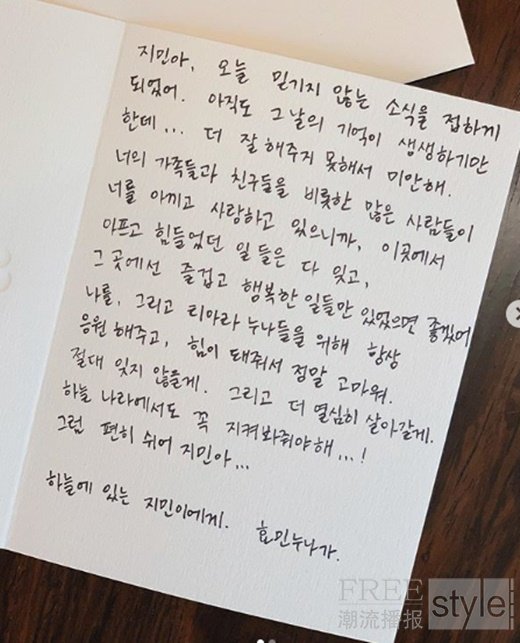 지민아, 오늘 믿기지 않는 소식을 접하게
되었어. 아직도 그날의 기억이 생생하기만
한데... 더 잘해주지 못해서 미안해.
너의 가족들과 친구들을 비롯한 많은 사람들이
너를 아끼고 사랑하고 있으니까, 이곳에서
아프고 힘들었던 일들은 다 잊고,
그곳에선 즐겁고 행복한 일들만 있었으면 좋겠어
나를, 그리고 티아라 누나들을 위해 항상
응원해주고, 힘이 돼줘서 정말 고마워.
절대 잊지 않을게. 그리고 더 열심히 살아갈게.
하늘 나라에서도 꼭 지켜봐줘야해...!
그럼 편히 쉬어 지민아...
하늘에 있는 지민이에게. 효민누나가.
FREE style
潮流播报